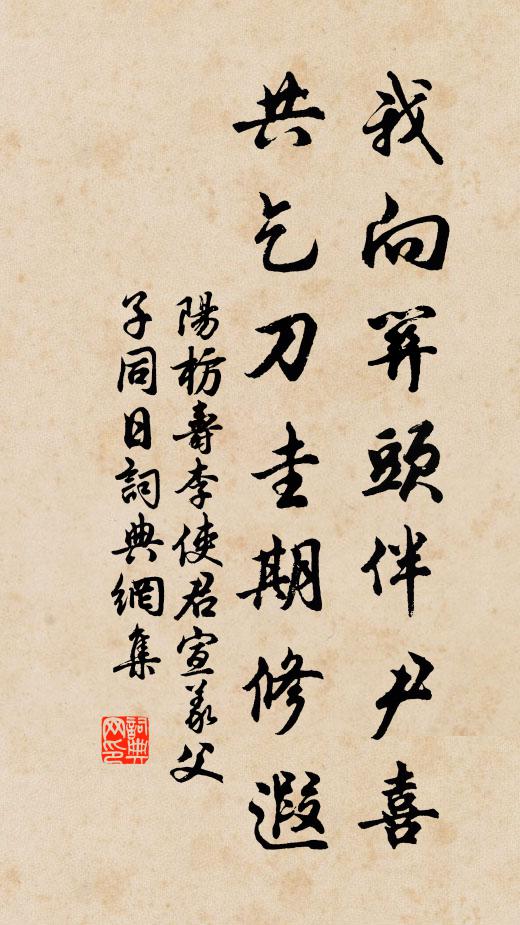 我向筓頭伴尹喜
共乞刀圭期修遐
陽枋壽李使君宣義父
子同日詞典網集
詞典
网